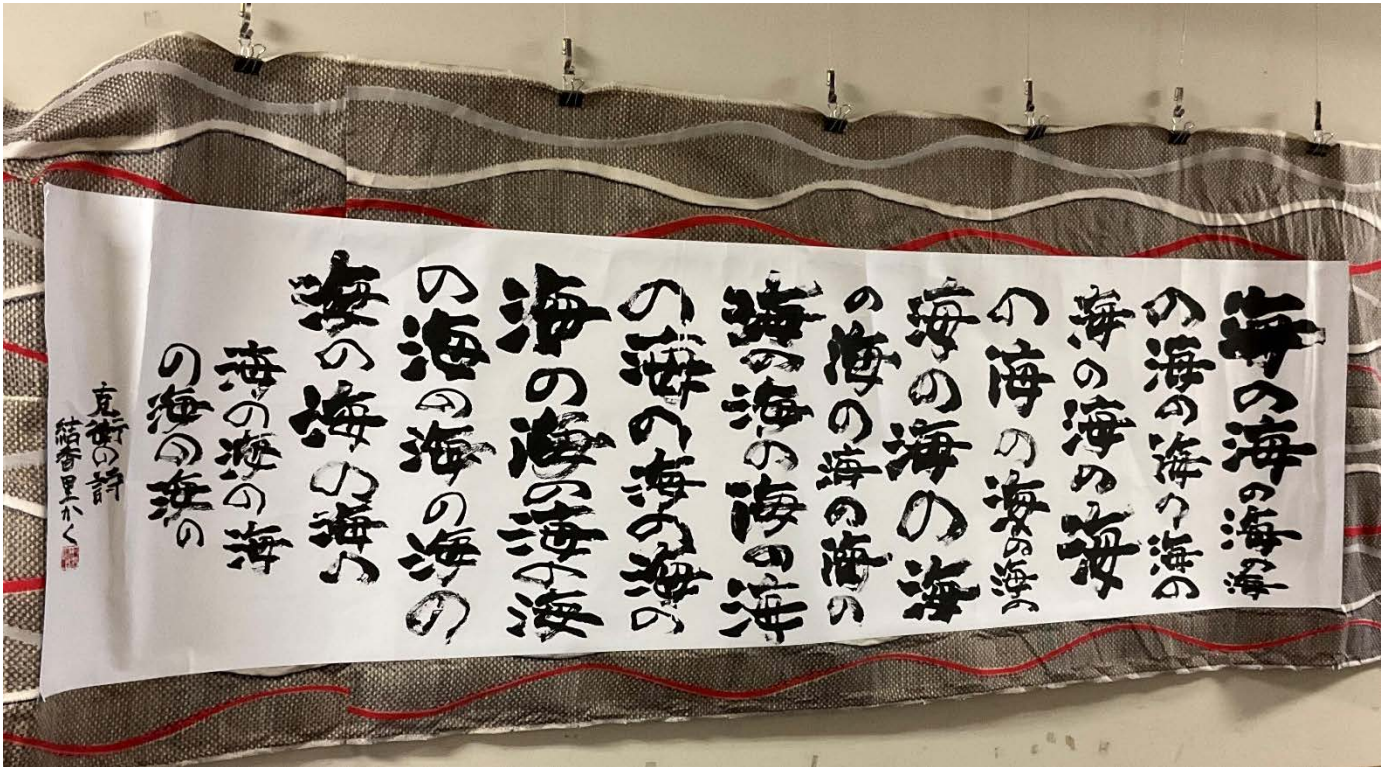 海の海の海の海
の海の海の海の
海の海の海
の海の海の海の
海の海の海
の海の海の海の
海の海の海の海
の海の海の海の
海の海の海の海
の海の海の海の
海の海の海の
海の海の海
の海の海の
克衛の詩
結香里かく